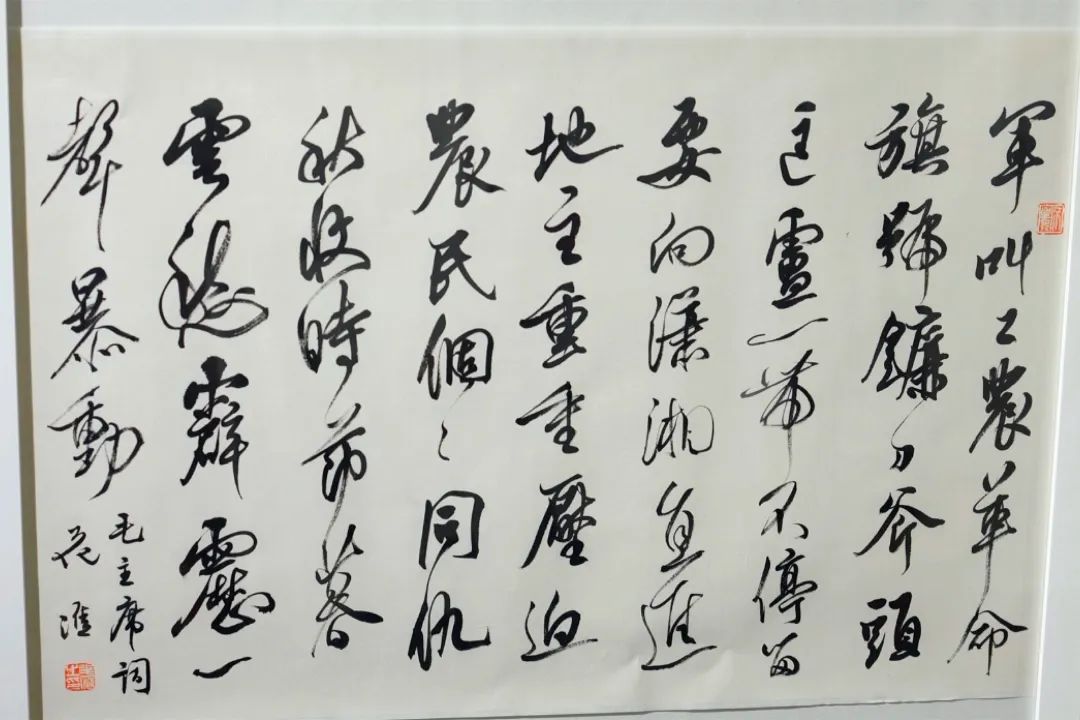 軍叫工農革命
旗號鐮刀斧頭
匡盧一帶不停留
要向瀟湘直進
地主重重壓迫
農民個々同仇
秋收時節暮
雲愁霹靂一
聲暴動
毛主席詞